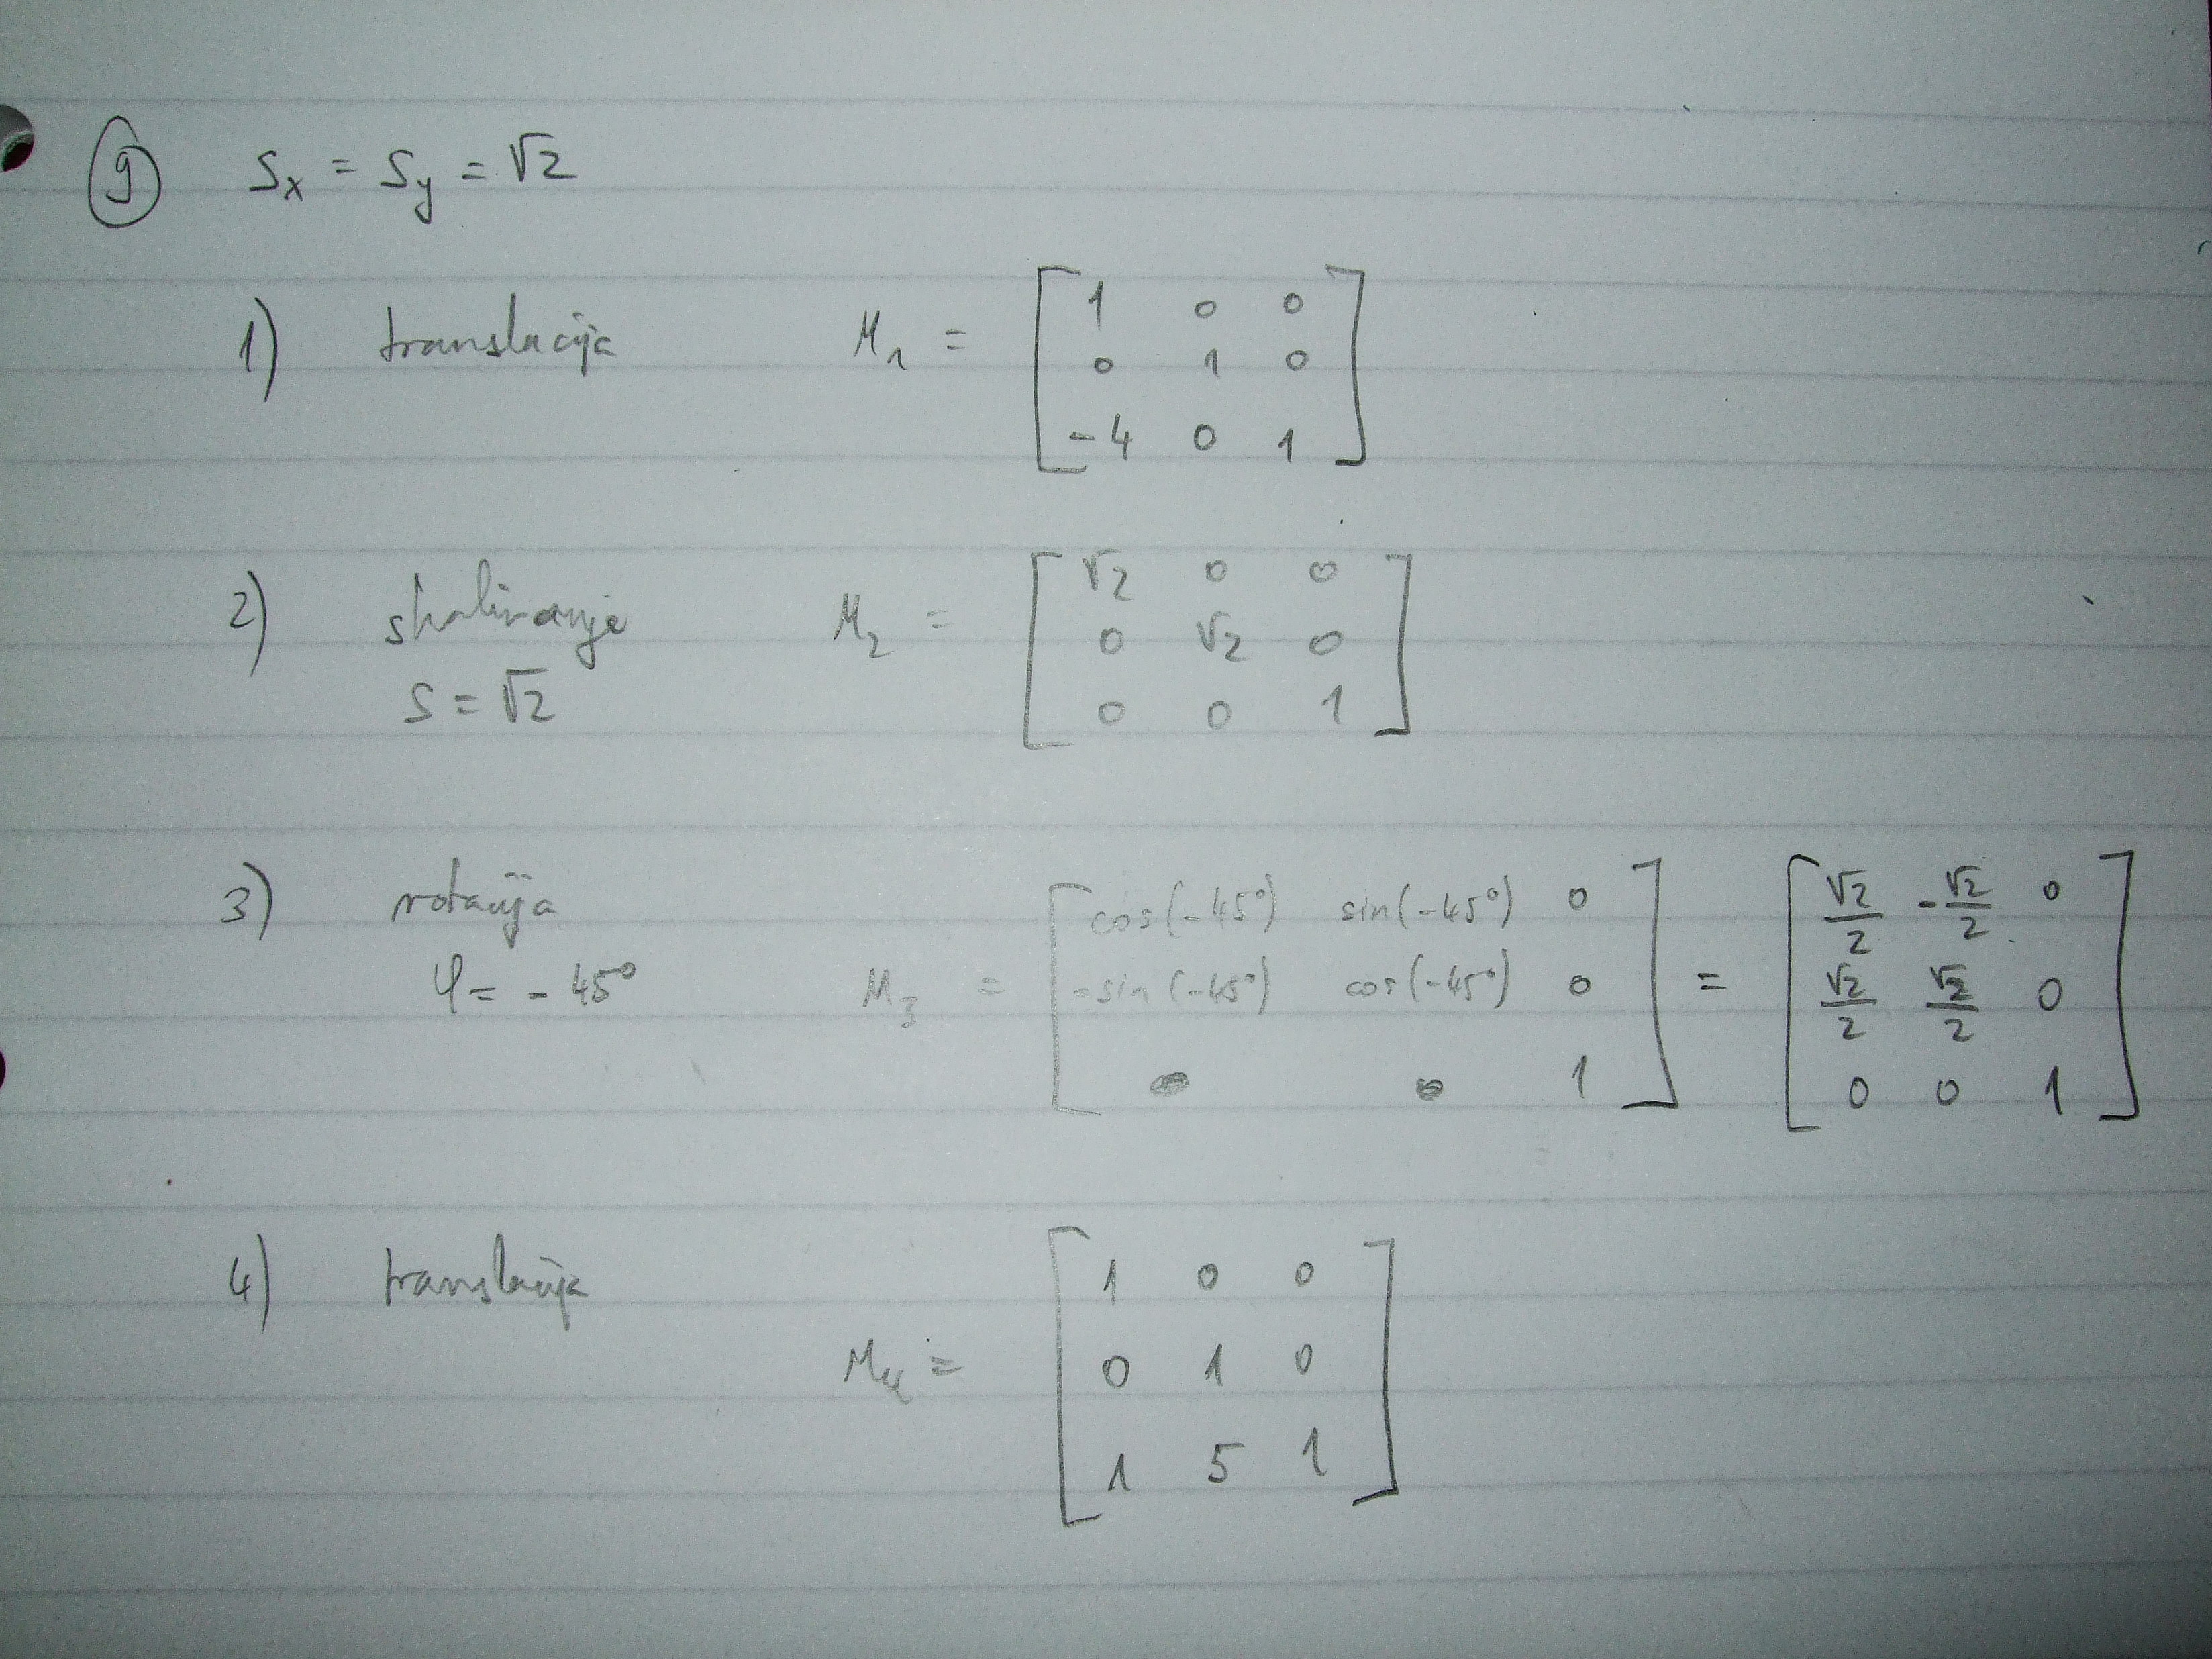 9 Sx = Sy = √2
1) translacija M1 = [ 1 0 0
0 1 0
-4 0 1 ]
2) skaliranje M2 = [ √2 0 0
s = √2 0 √2 0
0 0 1 ]
3) rotacija M3 = [ cos(-45°) sin(-45°) 0 ] = [ √2/2 -√2/2 0 ]
φ = -45° -sin(-45°) cos(-45°) 0 √2/2 √2/2 0
0 0 1 0 0 1
4) translacija M4 = [ 1 0 0
0 1 0
1 5 1 ]